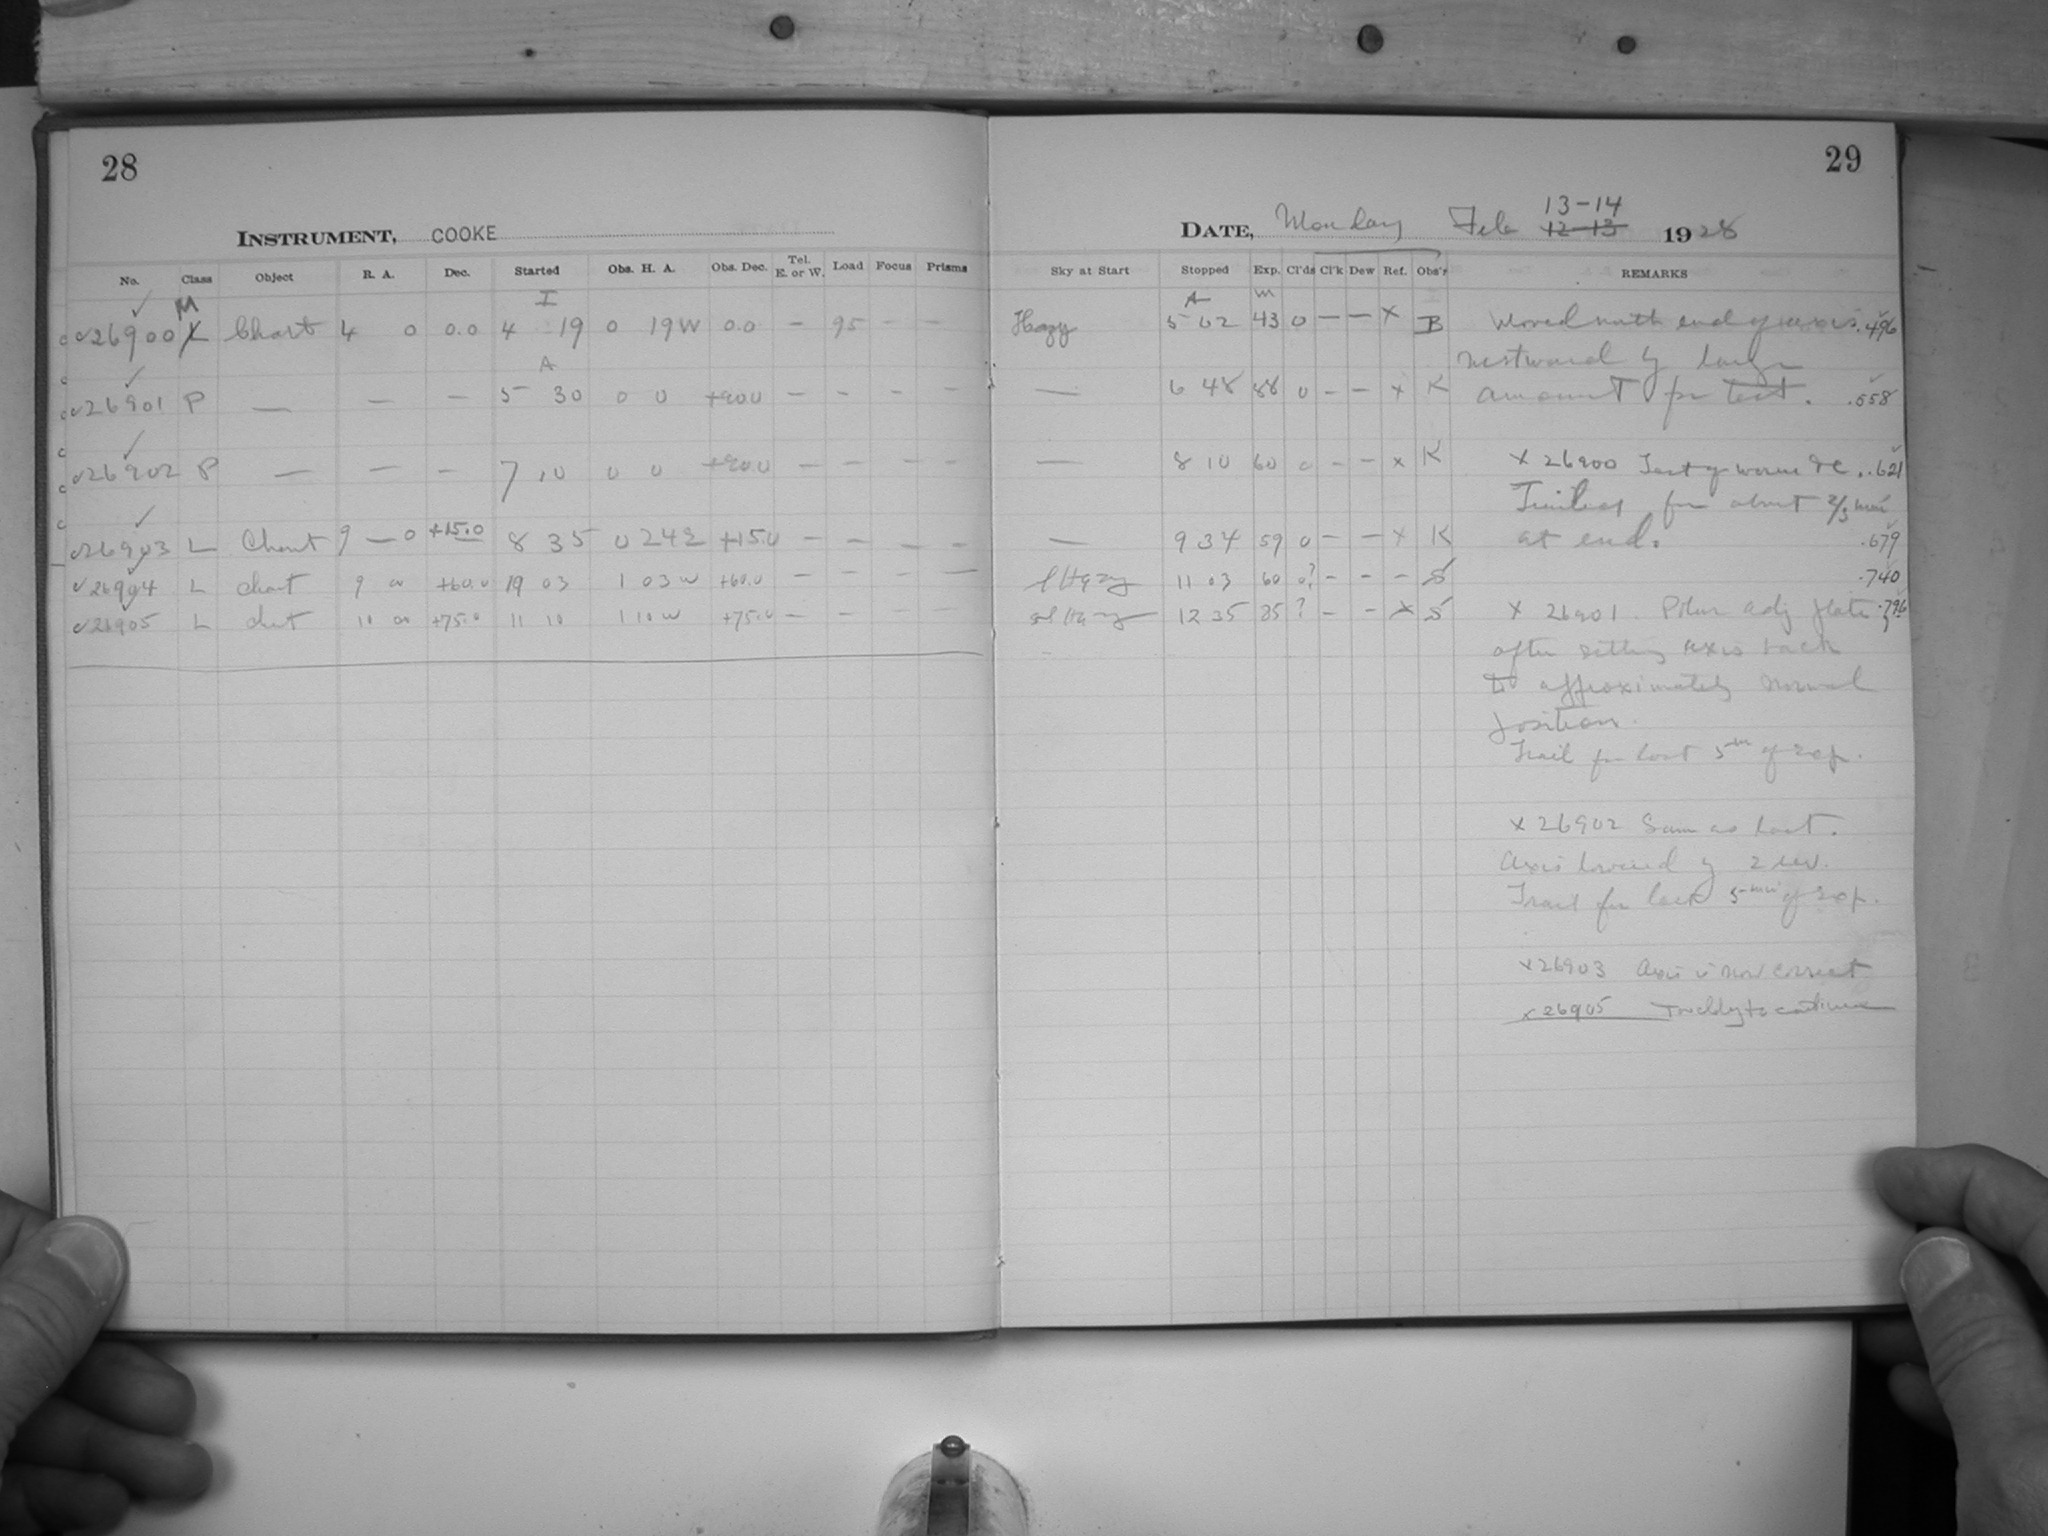 28
INSTRUMENT, COOKE
No. Class Object R. A. Dec. Started Obs. H. A. Obs. Dec. Tel. E. or W. Load Focus Prisms
M I
26900 L Chart 4 0 0.0 4 19 0 19 W 0.0 – 95 – –
A
26901 P — — — 5 30 0 0 +90.0 – – – –
26902 P — — — 7 10 0 0 +90.0 – – – –
26903 L Chart 9 — 0 +15.0 8 35 0 24 +15.0 – – – –
26904 L chart 9 00 +60.0 10 03 1 03 W +60.0 – – – –
26905 L chart 10 00 +75.0 11 10 1 10 W +75.0 – – – –
29
DATE, Monday Feb 13-14 12-13 1928
Sky at Start Stopped Exp. Cl'ds Cl'k Dew Ref. Obs'r REMARKS
A m
Hazy 5 02 43 0 – – x B Moved north end of axis .496
westward by large
— 6 48 88 0 – – x K amount for test. .558
— 8 10 60 0 – – x K x 26900 Test of worm &c. .621
Trailed for about 2/3 min
— 9 34 59 0 – – x K at end. .679
Hazy 11 03 60 0? – – – S .740
Hazy 12 35 85 ? – – x S x 26901 Polar adj plate .796
after setting axis back
to approximately normal
position.
Trail for last 5m of exp.
x 26902 Same as last.
Axis lowered by 2 rev.
Trail for last 5 min of exp.
x 26903 Axis is now correct
x 26905 Too cldy to continue